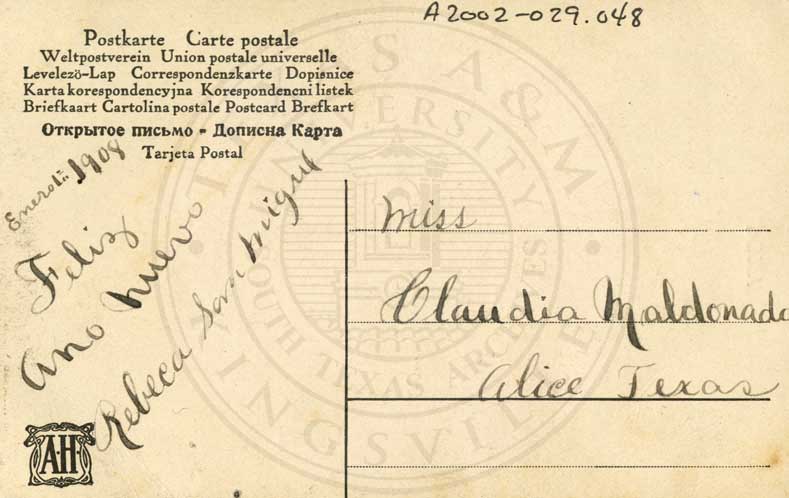 A2002-029.048
Postkarte Carte postale
Weltpostverein Union postale universelle
Levelezö-Lap Correspondenzkarte Dopisnice
Karta korespondencyjna Korespondencni listek
Briefkaart Cartolina postale Postcard Brefkart
Открытое письмо - Дописна Карта
Tarjeta Postal
Enero 1º 1908
Feliz
Ano Nuevo
Rebeca San Miguel
Miss
Claudia Maldonado
Alice Texas
A·H·
TEXAS A&M UNIVERSITY
KINGSVILLE
SOUTH TEXAS ARCHIVES